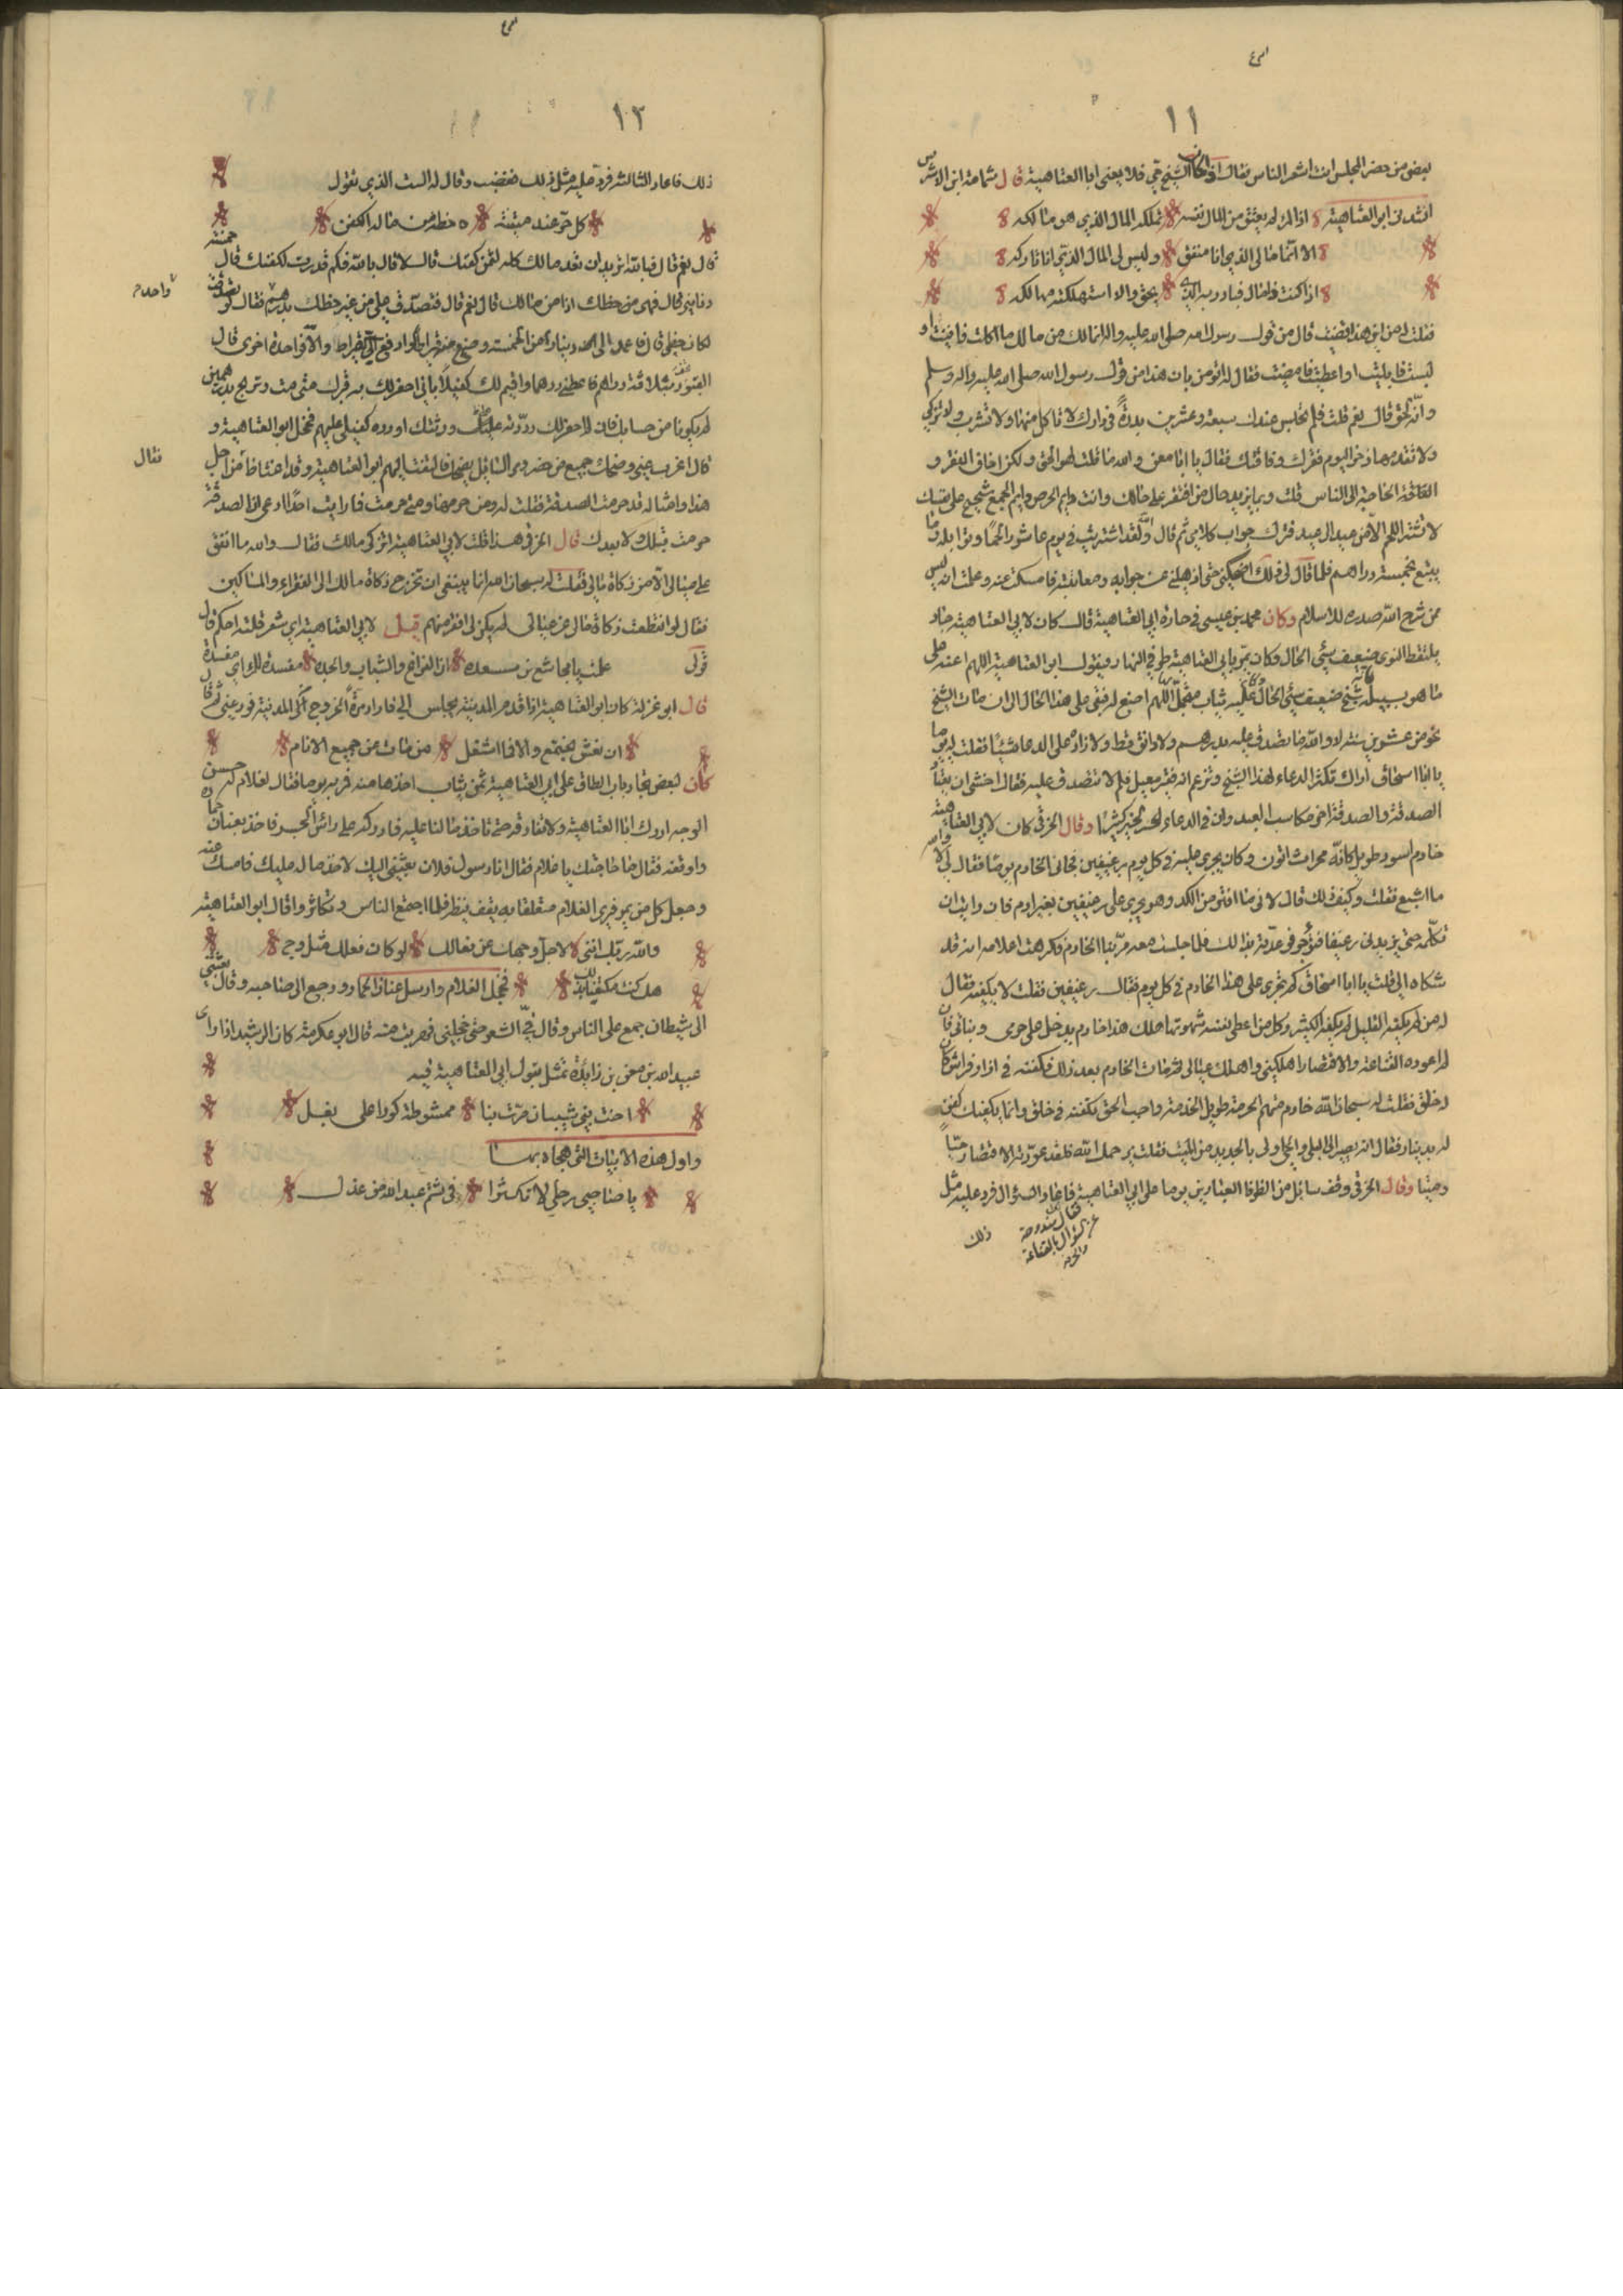 ١١
بعض من حضر المجلس انت اشعر الناس فقال اذا كان الشيخ حي فلا يعني ابا العتاهية قال ثمامة ابن الاشرس
انشدني ابو العتاهية اذا المرء لم يعتق من المال نفسه تملكه المال الذي هو مالكه
الا انما مالي الذي انا منفق وليس لي المال الذي انا تاركه
اذا كنت ذا مال فبادر به الذي يحق والا استهلكته مهالكه
فقلت له من اين هذا قضيت قال من قول رسول الله صلى الله عليه واله انما لك من مالك ما اكلت فافنيت او
لبست فابليت او اعطيت فامضيت فقلت له اتؤمن بان هذا من قول رسول الله صلى الله عليه واله وسلم
وانه الحق قال نعم قلت فلم تحبس عندك سبعة وعشرين بدرة في دارك لا تاكل منها ولا تشرب ولا تزكي
ولا تقدمها ذخرا ليوم فقرك وفاقتك فقال يا ابا معن والله ما قلت لهو الحق ولكن اخاف الفقر و
الفاقة الحاجة الى الناس قلت وبما يزيد حال من افتقر على حالك وانت دايم الحرص دايم الجمع شحيح على نفسك
لا تشتر اللحم الا من عيد الى عيد فترك جواب كلامي ثم قال والله لقد اشتريت في يوم عاشورا لحما وتوابله وما
يتبع بخمسة دراهم فلما قال لي ذلك اضحكني حتى اذهلني عن جوابه ومعاتبته فامسكت عنه وعلمت انه ليس
ممن شرح الله صدره للاسلام وكان محمد بن عيسى في حارة ابي العتاهية قال كان لابي العتاهية جار
يلتقط النوى ضعيف سيئ الحال وكان يمر بابي العتاهية طرفي النهار فيقول ابو العتاهية اللهم اعنه على
ما هو بسبيله شيخ ضعيف سيئ الحال عليه ثياب متجمل اللهم اصنع له فبقي على هذا الحال الى ان مات الشيخ
نحو من عشرين سنة لا والله ما تصدق عليه بدرهم ولا دانق قط ولا زاد على الدعا شيئا فقلت له يوما
يا ابا اسحاق اراك تكثر الدعاء لهذا الشيخ وتزعم انه فقير معيل فلم لا تتصدق عليه فقال اخشى ان يعتاد
الصدقة والصدقة اخر مكاسب العبد وان في الدعاء لخيرا كثيرا وقال الحرفي كان لابي العتاهية
خادم اسود طويل كانه محراث اتون وكان يجري عليه في كل يوم رغيفين فجائني الخادم يوما فقال لي والله
ما اشبع فقلت وكيف ذلك قال لاني ما افتر من الكد وهو يجري على رغيفين بغير ادم فان رايت ان
تكلمه حتى يزيدني رغيفا فتؤجر فوعدته بذلك فلما جلست معه مر بنا الخادم فكرهت اعلامه انه قد
شكاه الي فقلت يا ابا اسحاق كم تجري على هذا الخادم في كل يوم فقال رغيفين فقلت لا يكفيه فقال
له من لم يكفه القليل لم يكفه الكثير وكل من اعطى نفسه شهوتها هلك هذا خادم يدخل على حرمي وبناتي فان
لم اعوده القناعة والاقتصار اهلكني واهلك عيالي فمات الخادم بعد ذلك فكفنه في ازار وفراش كان
له خلق فقلت له سبحان الله خادم قديم الحرمة طويل الخدمة واجب الحق تكفنه في خلق وانما يكفيك كفن
له بدينار فقال انه يصير الى البلى والحي اولى بالجديد من الميت فقلت يرحمك الله فلقد عودته الاقتصار حيا
وميتا وقال الحرفي وقف سائل من الظرفا العيارين يوما على ابي العتاهية فاعاد السؤال فرد عليه مثل
ذلك
١٢
ذلك فاعاد الثالثة فرد عليه مثل ذلك فغضب وقال له الست الذي تقول
كل حي عند ميتته حظه من ماله الكفن
قال نعم قال فبالله اتريد ان تعد مالك كله لثمن كفنك قال لا قال بالله فكم قدرت لكفنك قال خمسة
دنانير قال فهي من حظك اذا من مالك قال نعم قال فتصدق علي من غير حظك بدرهم فقال لو تصدقت
لكان حظي قال فاعمل الى دينار من الخمسة وضيع منه قيراطا وادفع الي قيراط والا فواحدة اخرى قال
واحدة
القبور بثلاثة دراهم فاعطني درهما واقيم لك كفيلا باني احفر لك به قبرك متى مت وتربح درهمين
لم يكونا من حسابك فان لم احفر لك رددته على ورثتك او رده كفيلي عليهم فخجل ابو العتاهية و
قال اعزب عني وضحك جميع من حضر ومر السائل يضحك فالتفت اليهم ابو العتاهية وقد اغتاظ من اجل
فقال
هذا وامثاله قد حرمت الصدقة فقلت له ومن حرمها ومتى حرمت فما رايت احدا ادعى ان الصدقة
حرمت قبلك ولا بعدك قال الحرفي هذا قلت لابي العتاهية اتزكي مالك فقال والله ما انفق
على عيالي الا من زكاة مالي فقلت له سبحان الله انما ينبغي ان تخرج زكاة مالك الى الفقراء والمساكين
فقال لو انقطعت زكاة مالي عن عيالي لم يكن لي افقر منهم قيل لابي العتاهية اي شعر قلته احكم قال
قولي علمت يا مجاشع بن مسعده ان الفراغ والشباب والجده مفسدة للمراي مفسدة
قال ابو غزية كان ابو العتاهية اذا قدم المدينة يجلس الي فاراد مرة الخروج من المدينة فودعني ثم قال
ان نعش نجتمع والا فما اشغل من مات عن جميع الانام
كان لبعض تجار باب الطاق على ابي العتاهية ثمن ثياب اخذها منه فمر به يوما فقال لغلام له حسن
الوجه ادرك ابا العتاهية ولا تفارقه حتى تاخذ ما لنا عليه فادركه على راس الجسر فاخذ بعنان حماره
واوقفه فقال ما حاجتك يا غلام فقال انا رسول فلان بعثني اليك لاخذ ماله عليك فامسك عنه
وجعل كل من يمر فيرى الغلام متعلقا به يقف ينظر فلما اجتمع الناس وتكاثروا قال ابو العتاهية
والله ربك انني لاجل وجهك عن فعالك لو كان فعلك مثل وجهك
هل كنت مكتفيا بذلك فخجل الغلام وارسل عنان الحمار ورجع الى صاحبه وقال بعثتني
الى شيطان جمع علي الناس وقال في الشعر حتى خجلني فهربت منه قال ابو عكرمة كان الرشيد اذا راى
عبد الله بن معن بن زائدة تمثل بقول ابي العتاهية فيه
اخت بني شيبان مرت بنا ممشوطة كورا على بغل
واول هذه الابيات التي هجاه بها
يا صاحبي رحلي لا تكثرا في شتم عبد الله من عذل